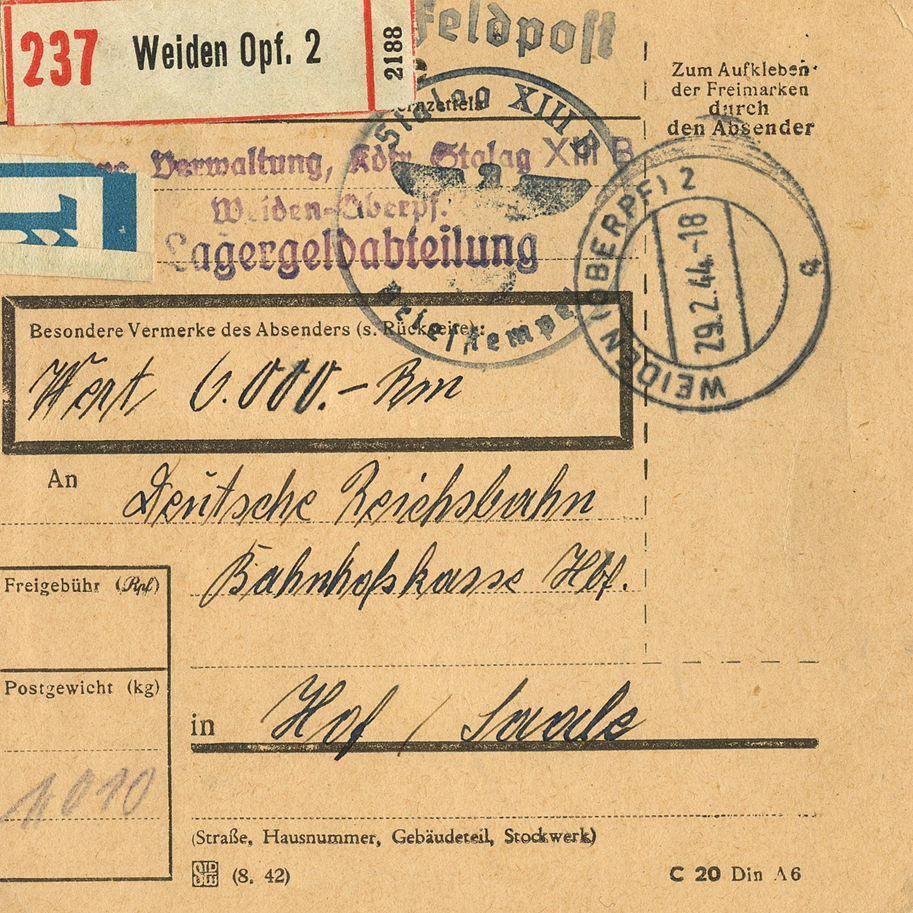 237 Weiden Opf. 2
2188
Feldpost
Zum Aufkleben
der Freimarken
durch
den Absender
Stalag XIII B
Verwaltung, Kdtr. Stalag XIII B
Weiden-Oberpf.
Lagergeldabteilung
Briefstempel
WEIDEN (OBERPF) 2
29.2.44.-18
a
Besondere Vermerke des Absenders (s. Rückseite):
Wert 6.000.- Rm
An Deutsche Reichsbahn
Bahnhofskasse Hbf.
Freigebühr (Rpf)
Postgewicht (kg)
in Hof / Saale
(Straße, Hausnummer, Gebäudeteil, Stockwerk)
(8. 42)
C 20 Din A6